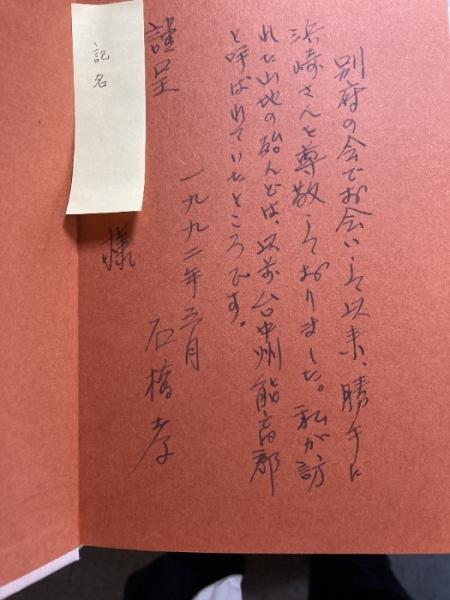 別府の会でお会いして以来、勝手に
浜崎さんを尊敬しておりました。私が訪
れた山地の殆んどは、以前台中州能高郡
と呼ばれていたところです。
一九九二年三月
石橋孝
謹呈
様
記名